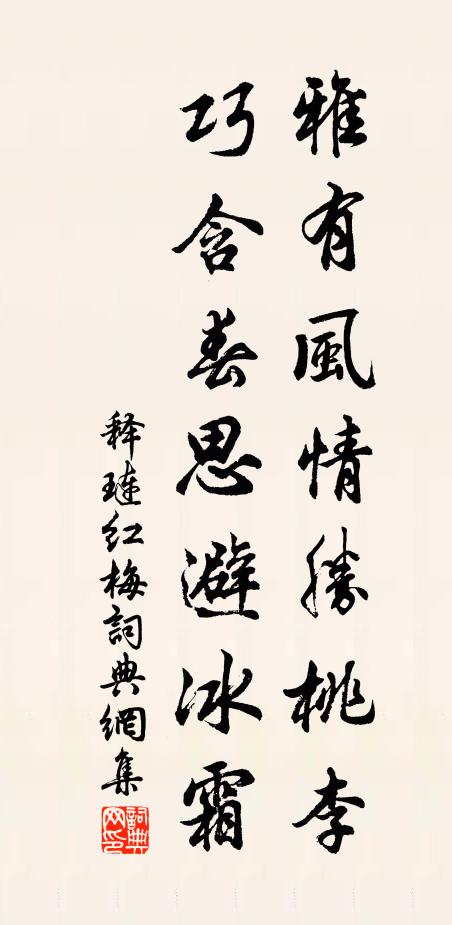 雅有風情勝桃李
巧含春思避冰霜
释璉红梅詞典網集
詞典網印